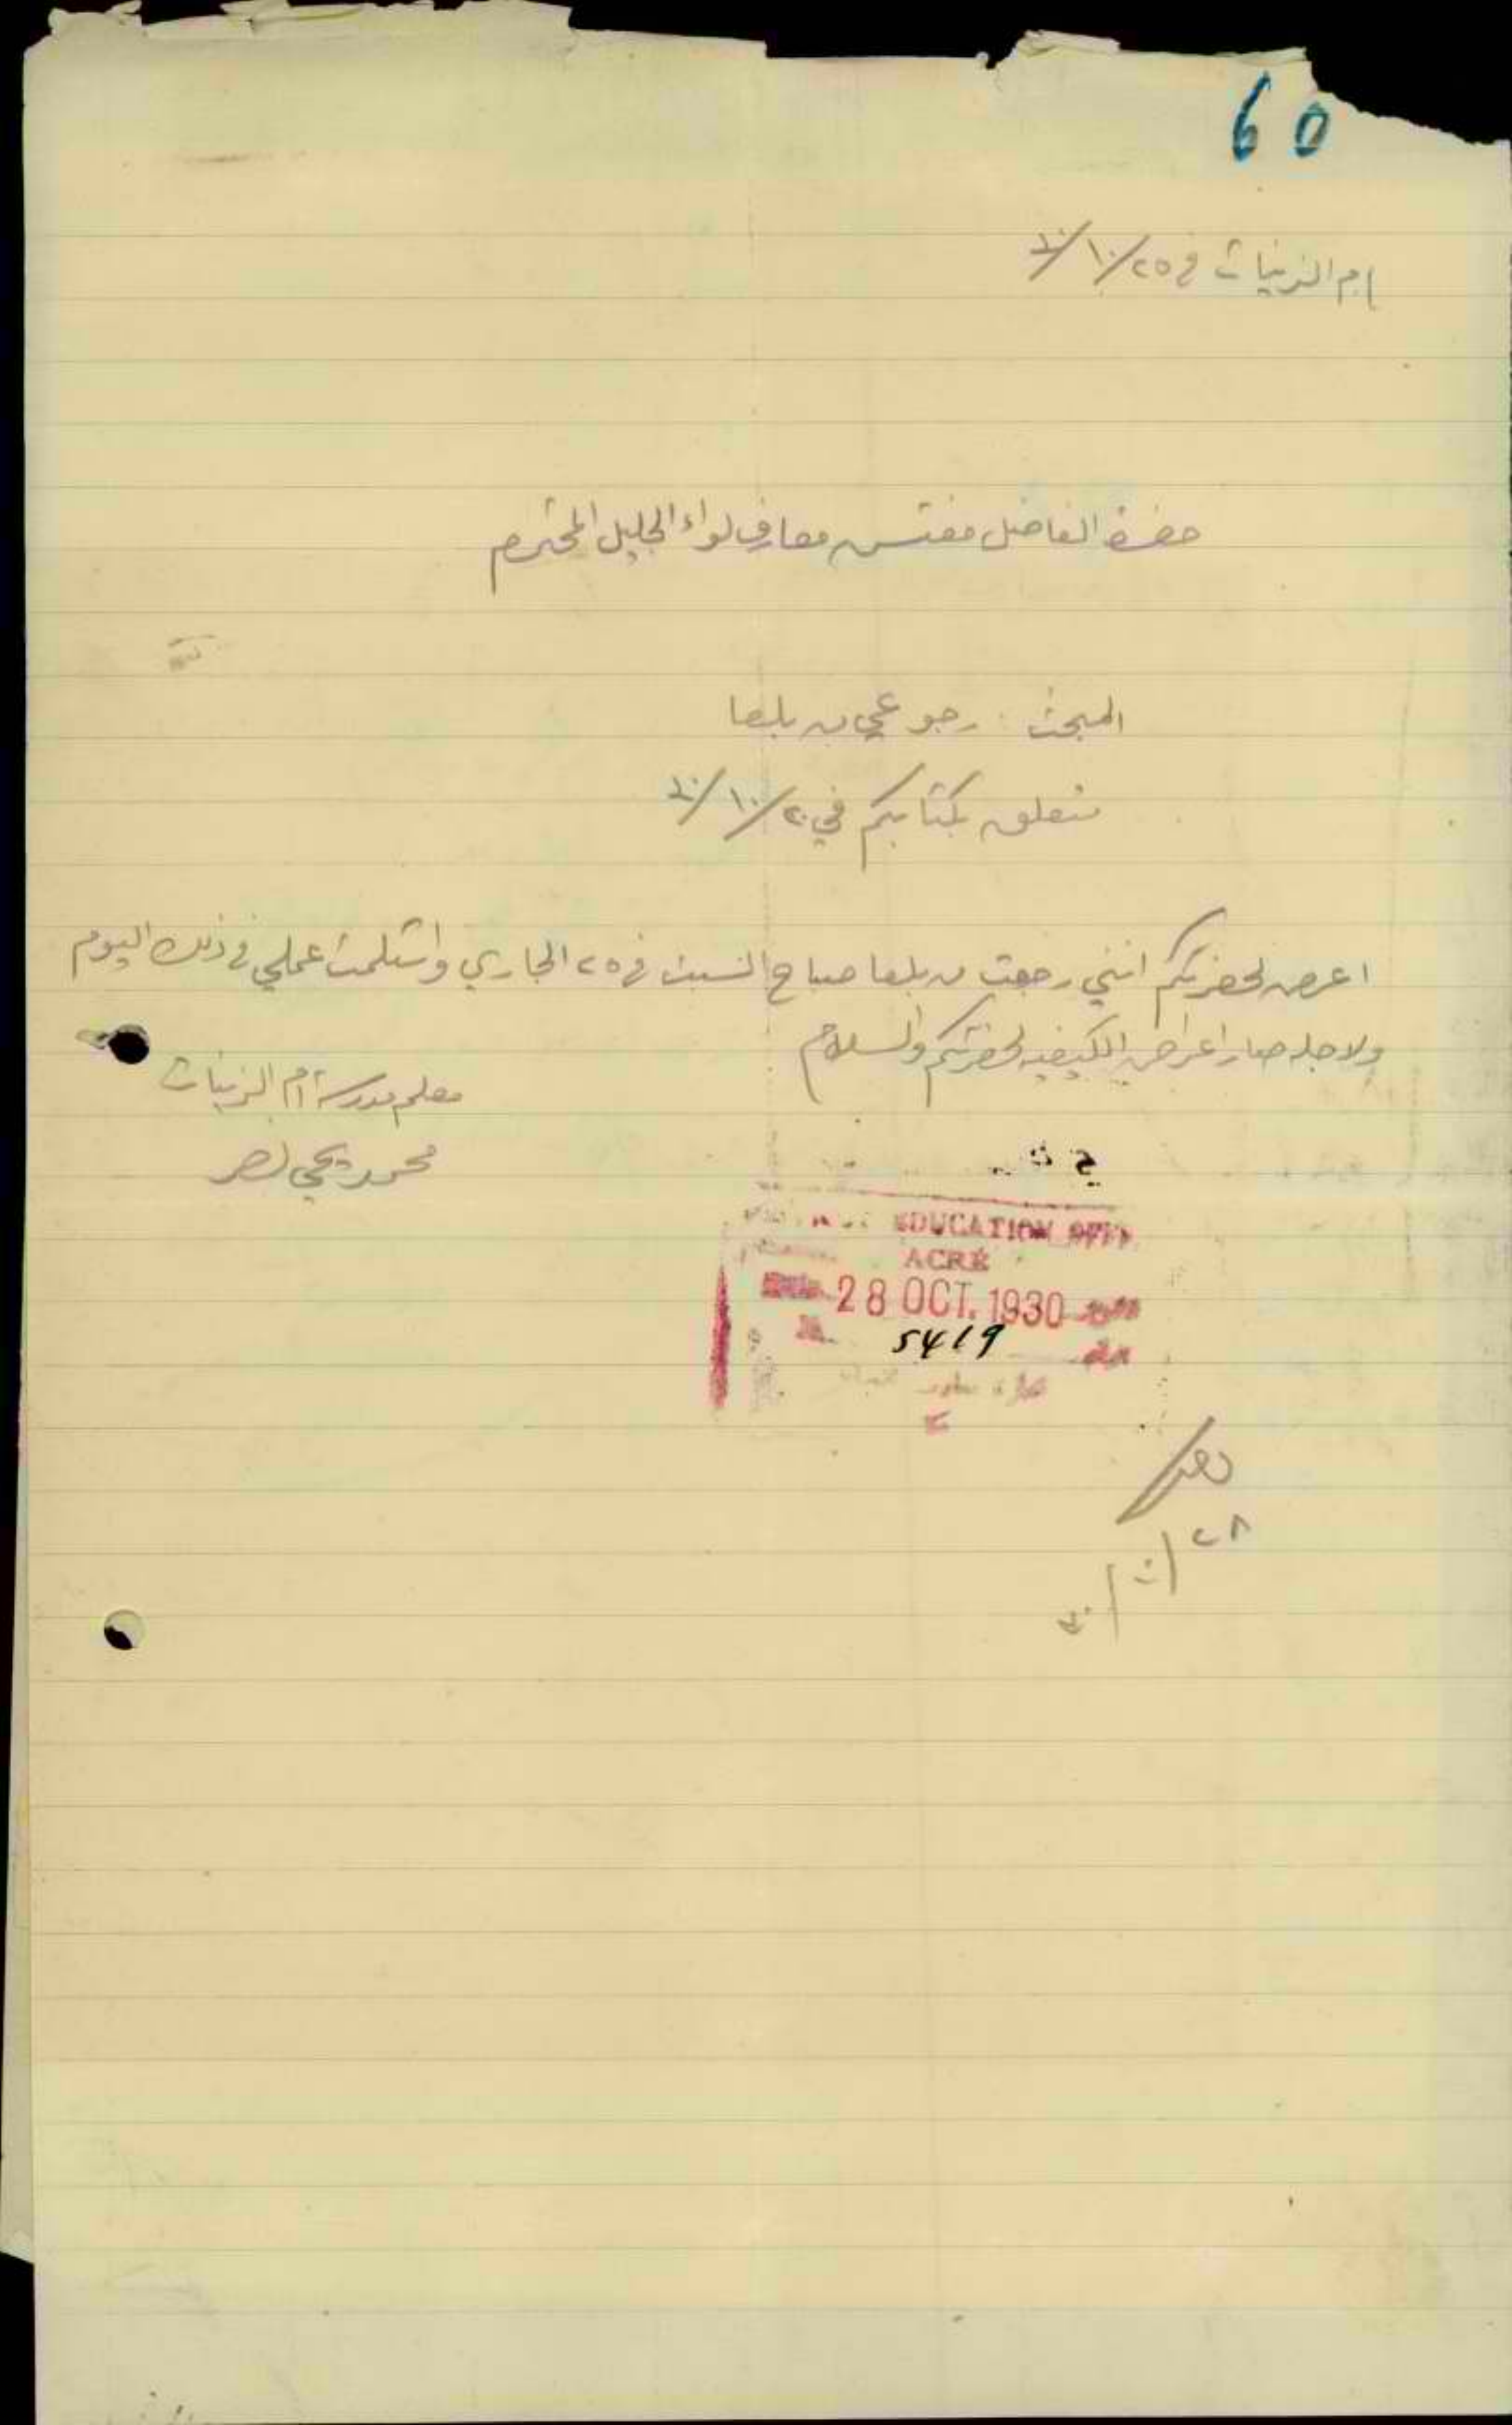 60
ام الزينات في ٢٥/١٠/٣٠
حضرة الفاضل مفتش معارف لواء الجليل المحترم
المبحث : رجوعي من بلعا
متعلق بكتابكم في ٢٠/١٠/٣٠
اعرض لحضرتكم انني رجعت من بلعا صباح السبت في ٢٥ الجاري واستلمت عملي في ذلك اليوم
ولاجله صار اعراض الكيفيه لحضرتكم والسلام
معلم مدرسة ام الزينات
محمد يحيى نصر
EDUCATION
ACRE
28 OCT. 1930
5419
٢٨/١٠/٣٠